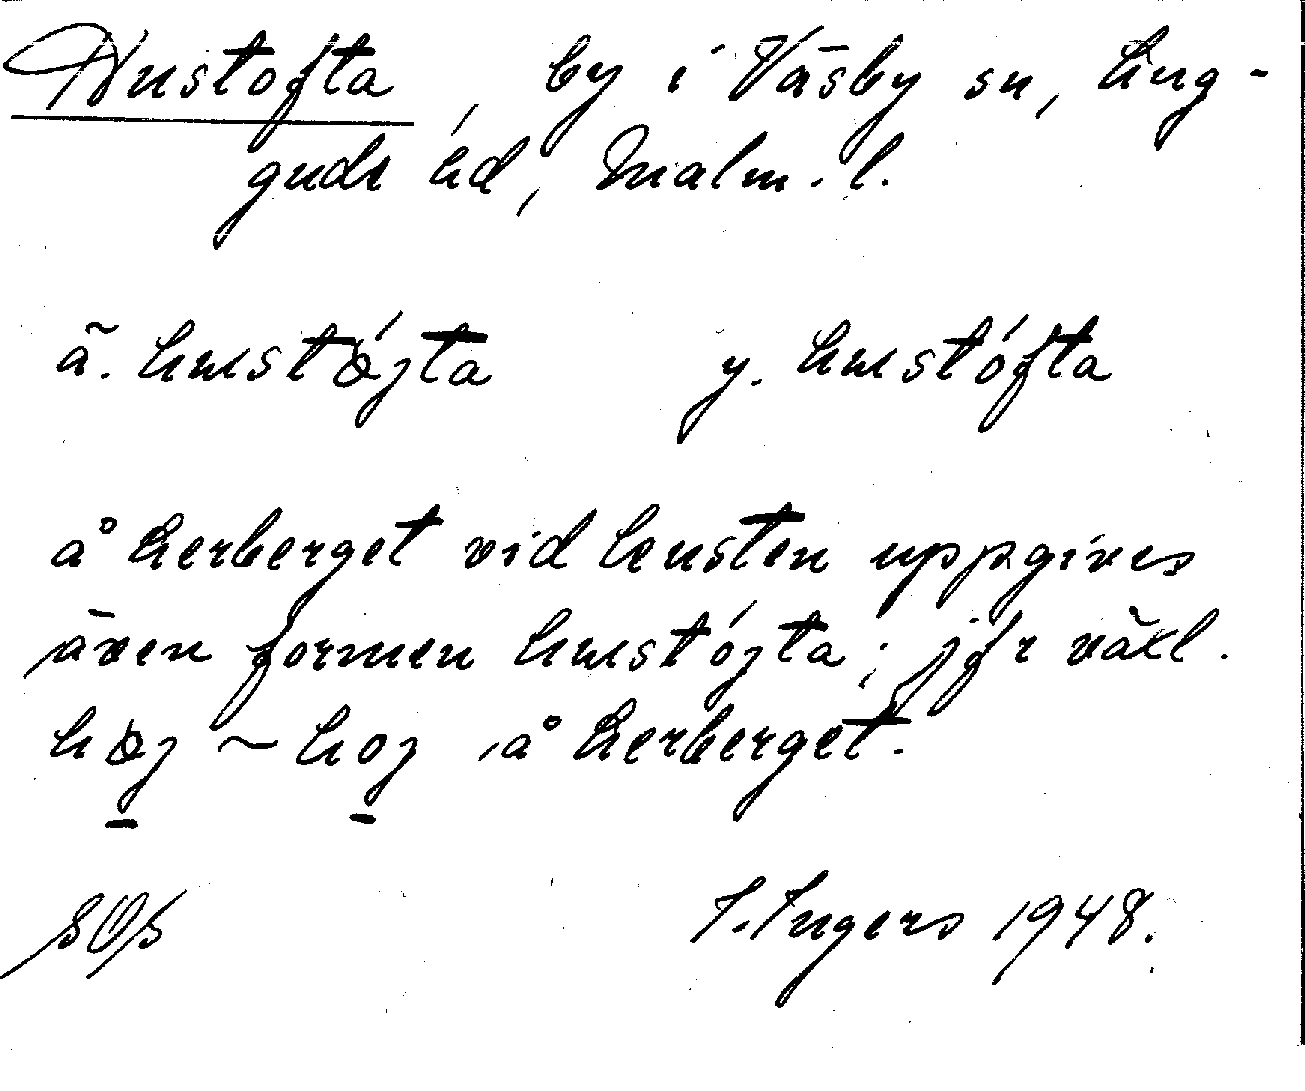 Hustofta, by i Väsby sn, Lug-
gude hd, Malm. l.
ä. hustǿjta y. hustófta
å Kerberget vid kusten uppgives
även formen hustójta; jfr växl.
høj ~ hoj å Kerberget.
SOS I. Ingers 1948.